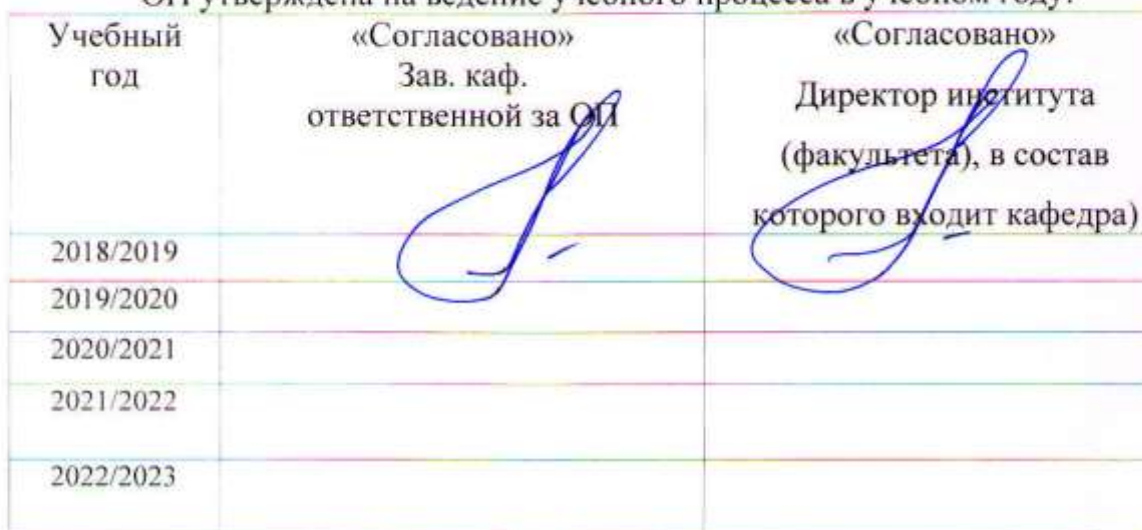 ОП утверждена на ведение учебного процесса в учебном году:
Учебный
год
«Согласовано»
Зав. каф.
ответственной за ОП
«Согласовано»
Директор института
(факультета), в состав
которого входит кафедра)
2018/2019
2019/2020
2020/2021
2021/2022
2022/2023